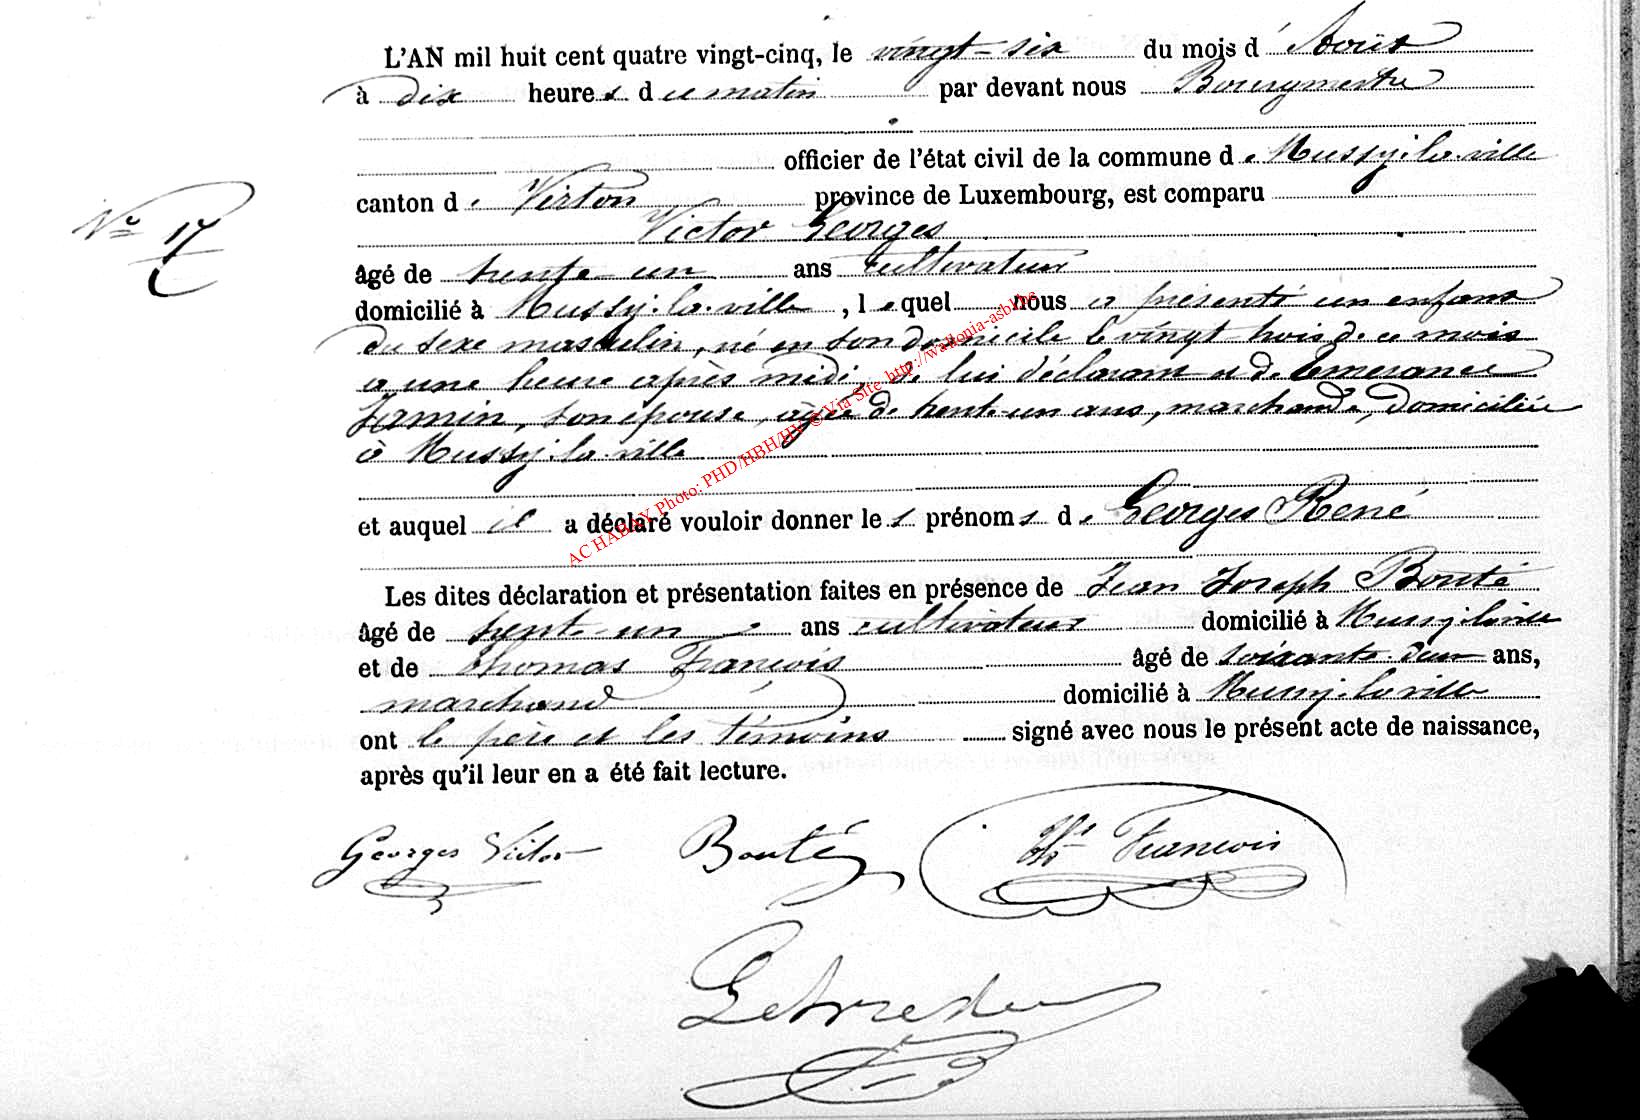 L'AN mil huit cent quatre vingt-cinq, le vingt-six du mois d' Août
à dix heures du matin par devant nous Bourgmestre
officier de l'état civil de la commune de Mussy-la-ville
canton de Virton province de Luxembourg, est comparu
Victor Georges
No 17
âgé de trente-un ans cultivateur
domicilié à Mussy-la-ville, lequel nous a présenté un enfant
du sexe masculin, né en son domicile le vingt-trois de ce mois
à une heure après midi, de lui déclarant et de Emerance
Jamin, son épouse, âgée de trente-un ans, marchande, domiciliée
à Mussy-la-ville
et auquel il a déclaré vouloir donner les prénoms de Georges René
Les dites déclaration et présentation faites en présence de Jean Joseph Bouté
âgé de trente-un ans cultivateur domicilié à Mussy-la-ville
et de Thomas François âgé de soixante-deux ans,
marchand domicilié à Mussy-la-ville
ont le père et les témoins signé avec nous le présent acte de naissance,
après qu'il leur en a été fait lecture.
Georges Victor Bouté Ths François
AC HABAY Photo: PHD/HBH/HV © Via Site http://wallonia-asbl.be